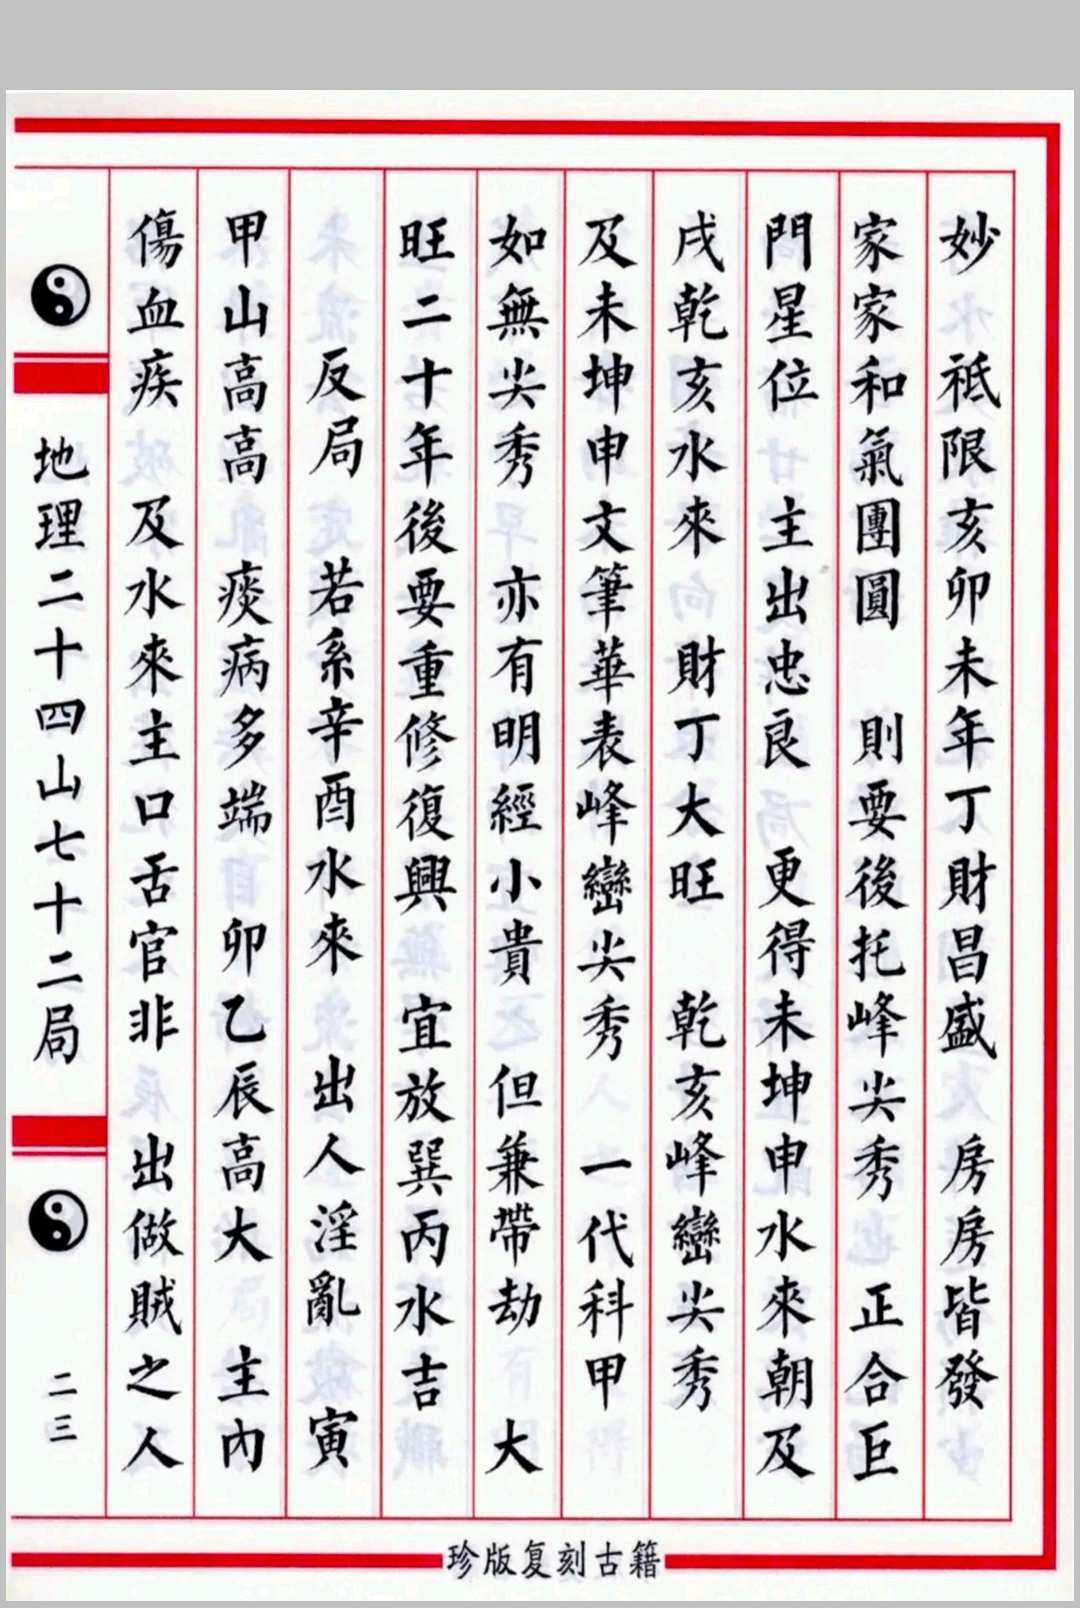 妙　祗限亥卯未年丁財昌盛　房房皆發
家家和氣團圓　則要後托峰尖秀　正合巨
門星位　主出忠良　更得未坤申水來朝及
戌乾亥水來　財丁大旺　乾亥峰巒尖秀
及未坤申文筆華表峰巒尖秀　一代科甲
如無尖秀　亦有明經小貴　但兼帶劫　大
旺二十年後要重修復興　宜放巽丙水吉
反局　若系辛酉水來　出人淫亂　寅
甲山高高　痰病多端　卯乙辰高大　主內
傷血疾　及水來主口舌官非　出做賊之人
地理二十四山七十二局
二三
珍版复刻古籍